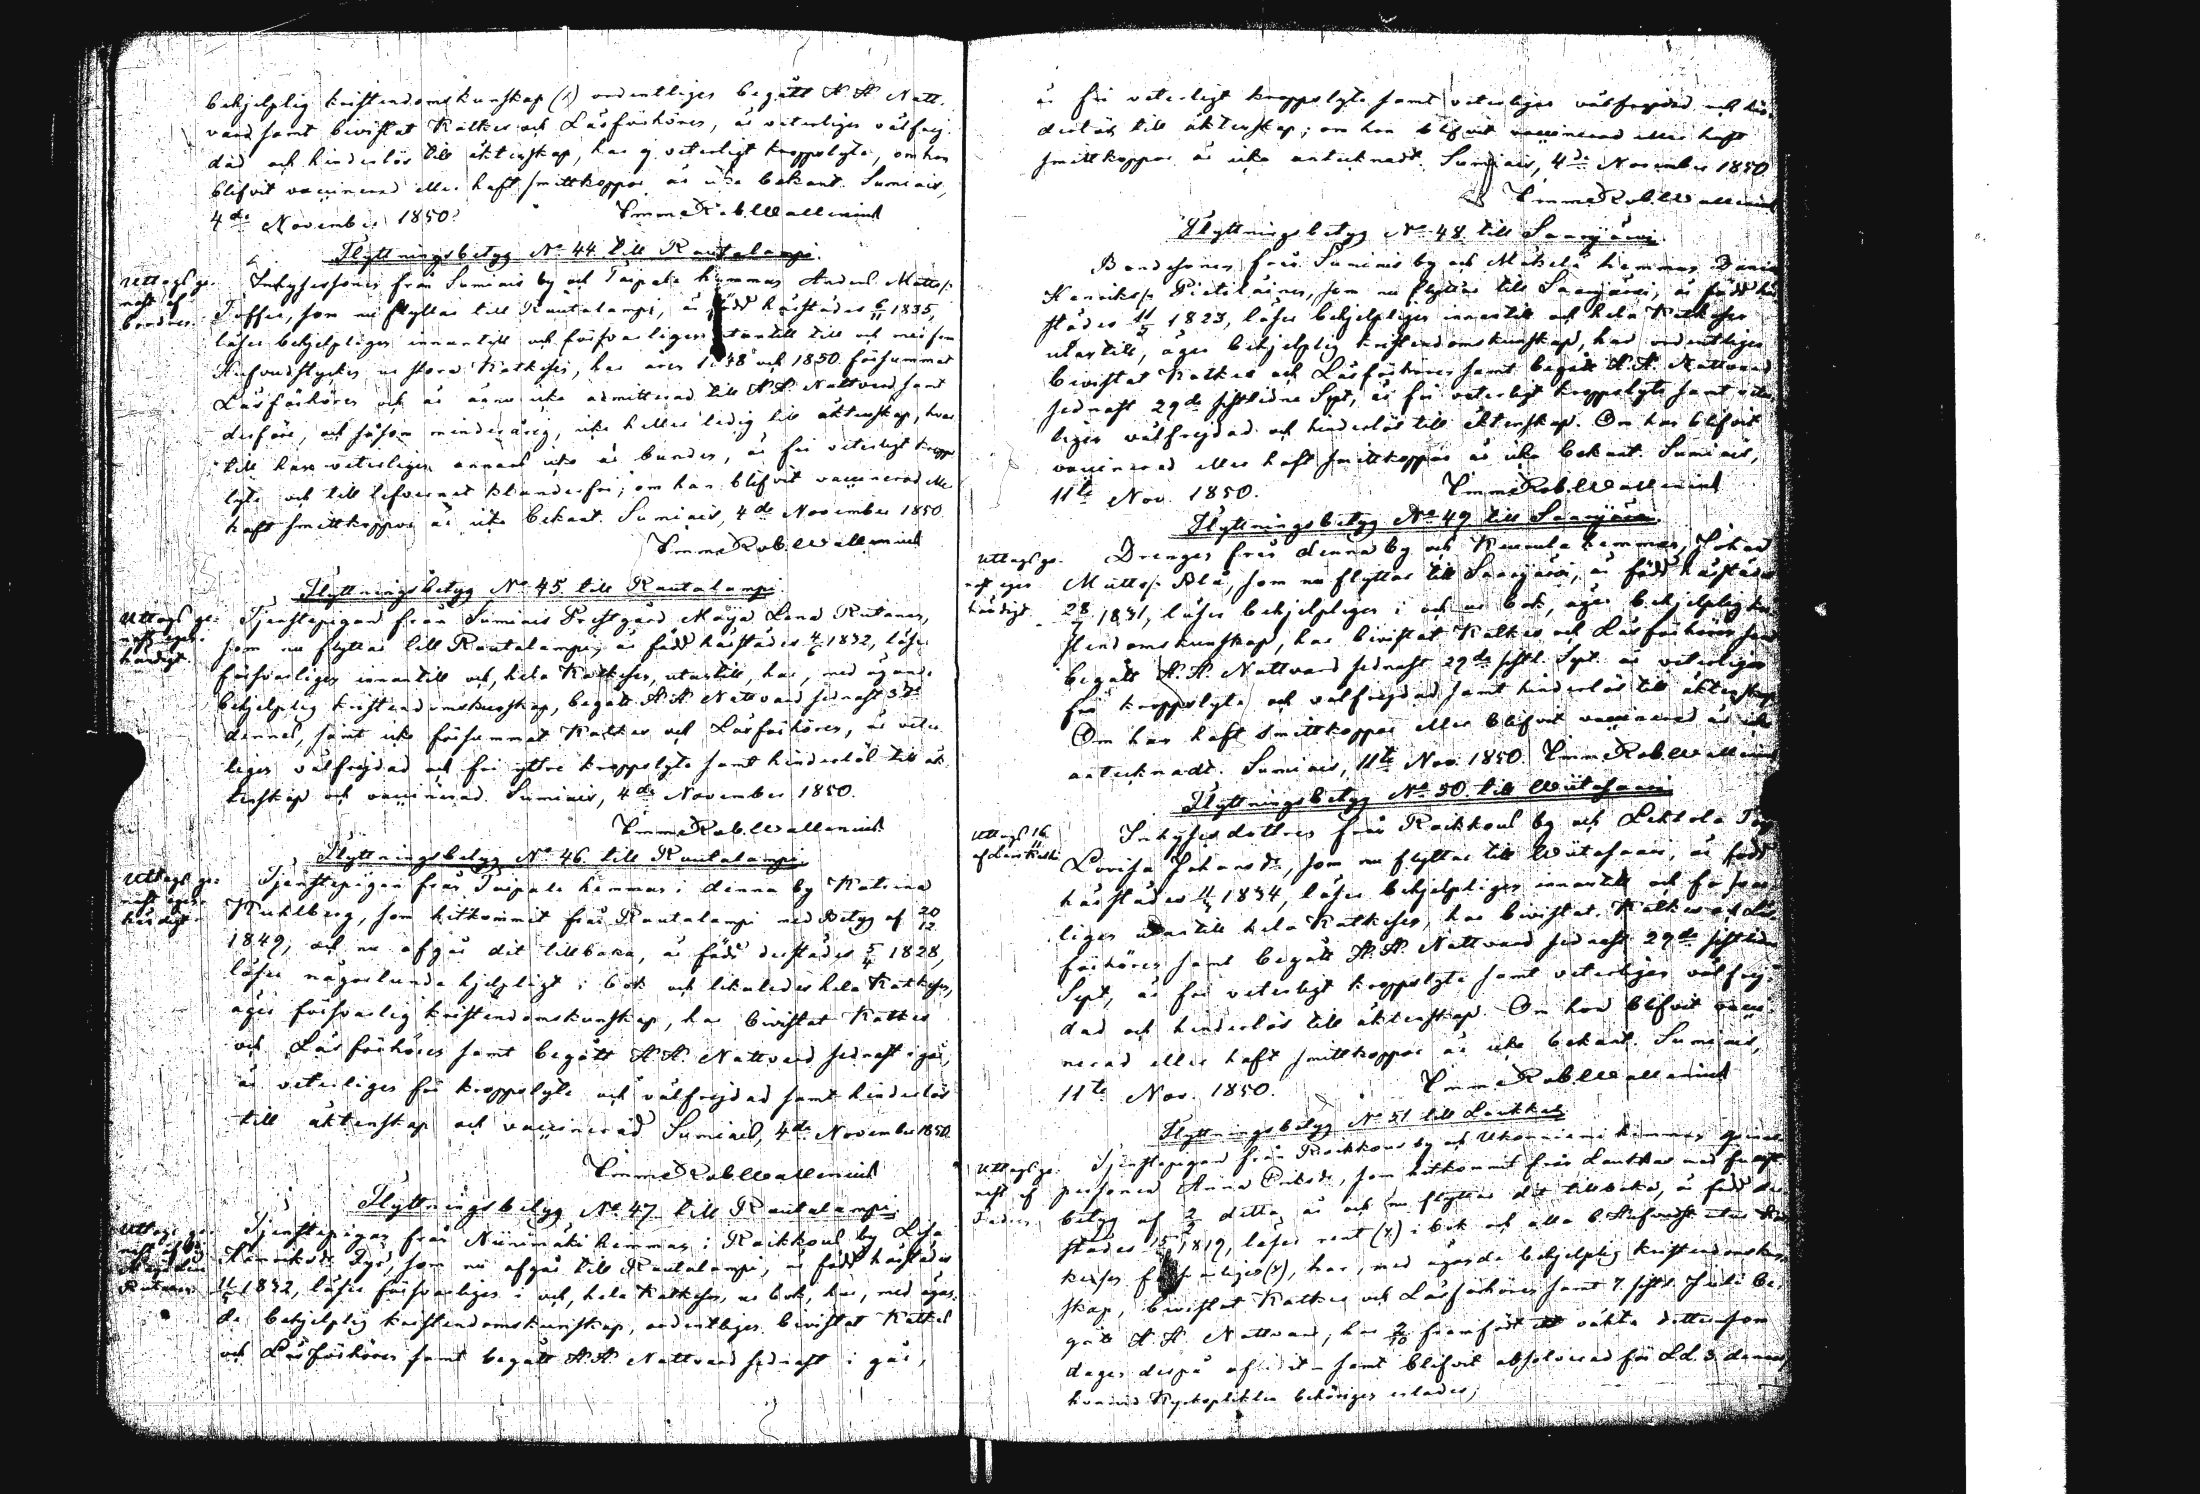 behjelplig kristendomskunskap (x) ordentligen begått H. H. Natt-
vard samt bivistat Katkes och Läsförhören, är veterligen välfrej-
dad och hinderlös till äktenskap, har ej veterligt kroppslyte, om hon
blifvit vaccinerad eller haft smittkoppor är icke bekant. Sumiais,
4de November 1850. Emme Rob. Wallenius
Flyttningsbetyg No 44 till Rautalampi.
Uttogs ge-
nast af
brodren
Inhysessonen från Sumiais by och Taipale hemman Anders Mattss.
Toffer, som nu flyttar till Rautalampi, är född härstädes 6/11 1835,
läser behjelpligen innantill och försvarligen utantill till och med sm
Hufvudstycken ur stora Katkesen, har åren 1848 och 1850 försummat
Läsförhören och är ännu icke admitterad till H. H. Nattvard samt
derföre, och såsom minderårig, icke heller ledig till äktenskap, hvar
till han veterligen annars icke är bunden, är fri veterligt kropps-
lyte och till lefvernet klanderfri; om han blifvit vaccinerad ell.
haft smittkoppor är icke bekant. Sumiais, 4de November 1850
Emme Rob. Wallenius
Flyttningsbetyg No 45 till Rautalampi
Uttogs ge-
nast egen-
händigt.
Tjenstepigan från Sumiais Prestgård Maja Lena Rutanen,
som nu flyttar till Rautalampi, är född härstädes 4/6 1832, läser
försvarligen innantill och, hela Katkesen, utantill, har, med ägande
behjelplig kristendomskunskap, begått H. H. Nattvard sednast 3de
dennes, samt icke försummat Katkes och Läsförhören, är veter-
ligen välfrejdad och fri yttre kroppslyte samt hinderlös till äk-
tenskap och vaccinerad. Sumiais, 4de November 1850.
Emme Rob. Wallenius
Flyttningsbetyg No 46 till Rautalampi
Uttogs ge-
nast egen-
händigt
Tjenstepigan från Taipale hemman i denna by Katrina
Kuhlberg, som hitkommit från Rautalampi med Betyg af 20/12
1849, och nu afgår dit tillbaka, är född derstädes 5/4 1828,
läser någorlunda hjelpligt i bok och likaledes hela Katkesen,
äger försvarlig kristendomskunskap, har bivistat Katkes
och Läsförhören samt begått H. H. Nattvard sednast i går,
är veterligen fri kroppslyte och välfrejdad samt hinderlös
till äktenskap och vaccinerad Sumiais, 4de November 1850.
Emme Rob Wallenius
Flyttningsbetyg No 47 till Rautalampi.
Uttogs ge-
nast af
Maja Lena
Rutanen
Tjenstepigan från Niinimäki hemman i Raikkous by Lisa
Henriksdr, som nu afgår till Rautalampi, är född härstädes
1832, läser försvarligen i och, hela Katkesen, ur bok, har, med ägan-
de behjelplig kristendomskunskap, ordentligen bivistat Katkes
och Läsförhören samt begått H. H. Nattvard sednast i går,
är fri veterligt kroppslyte samt veterligen välfrejdad och hin-
derlös till äktenskap; om hon blifvit vaccinerad eller haft
smittkoppor är icke antecknadt. Sumiais, 4de November 1850
Emme Rob. Wallenius
Flyttningsbetyg No 48 till Saarijärvi.
Bondesonen från Sumiais by och Mäkelä hemman
Henrikss. Pietiläinen, som nu flyttar till Saarijärvi, är född här-
städes 1823, läser behjelpligen innantill och hela Katkesen
utantill, äger behjelplig kristendomskunskap, har ordentligen
bivistat Katkes och Läsförhören samt begått H. H. Nattvard
sednast 29de sistlidne Sept, är fri veterligt kroppslyte samt veter-
ligen välfrejdad och hinderlös till äktenskap. Om han blifvit
vaccinerad eller haft smittkoppor är icke bekant. Sumiais,
11te Nov. 1850. Emme Rob. Wallenius
Flyttningsbetyg No 49 till Saarijärvi.
Uttogs ge-
nast egen-
händigt.
Drengen från denna by och hemman, Johan
Mattss. Ala, som nu flyttar till Saarijärvi, är född härstädes
1831, läser behjelpligen i och ur bok, äger behjelplig kri-
stendomskunskap, har bivistat Katkes och Läsförhören samt
begått H. H. Nattvard sednast 29de sistl. Sept. är veterligen
fri kroppslyte och välfrejdad samt hinderlös till äktenskap
Om han haft smittkoppor eller blifvit vaccinerad är icke
antecknadt. Sumiais, 11te Nov. 1850. Emme Rob. Wallenius
Flyttningsbetyg No 50 till Wiitasaari
Uttogs 16/11
Inhysesdottren från Raikkous by och Lehtola Torp
Lovisa Johansdr, som nu flyttar till Wiitasaari, är född
härstädes 1834, läser behjelpligen innantill och försvar-
ligen utantill hela Katkesen, har bivistat Katkes och Läs-
förhören samt begått H. H. Nattvard sednast 29de sistlidne
Sept, är fri veterligt kroppslyte samt veterligen välfrej-
dad och hinderlös till äktenskap. Om hon blifvit vacci-
nerad eller haft smittkoppor är icke bekant. Sumiais,
11te Nov. 1850. Emme Rob Wallenius
Flyttningsbetyg No 51 till Laukkas
Uttogs ge-
nast af
Fadren
Tjenstepigan från Raikkous by och Ukonniemi hemman qvins-
personen Anna Eriksdr, som hitkommit från Laukkas med
betyg af ditto år och nu flyttar dit tillbaka, är född der-
städes 1819, läser rent (x) i bok och alla 6 Hufvudst utur
kesen försvarligen (x), har, med ägande behjelplig kristendomskun-
skap, bivistat Katkes och Läsförhören samt 7 sistl. Juli be-
gått H. H. Nattvard, har 2/10 framfödt oäkta dotter som
dagen derpå aflidit samt blifvit absolverad för L. L. 3 dennes,
hvarvid Kyrkoplikten behörigen erlades;